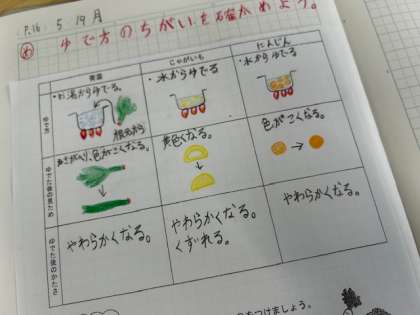 P.16 5/19 月
め ゆで方のちがいを確かめよう。
じゃがいも
にんじん
ゆで方
・お湯からゆでる。
根元から
・水からゆでる
・水からゆでる
ゆでた後の見ため
かさがへり、色がこくなる。
黄色くなる。
色がこくなる。
ゆでた後のかたさ
やわらかくなる。
やわらかくなる。
くずれる。
やわらかくなる。
つけましょう。